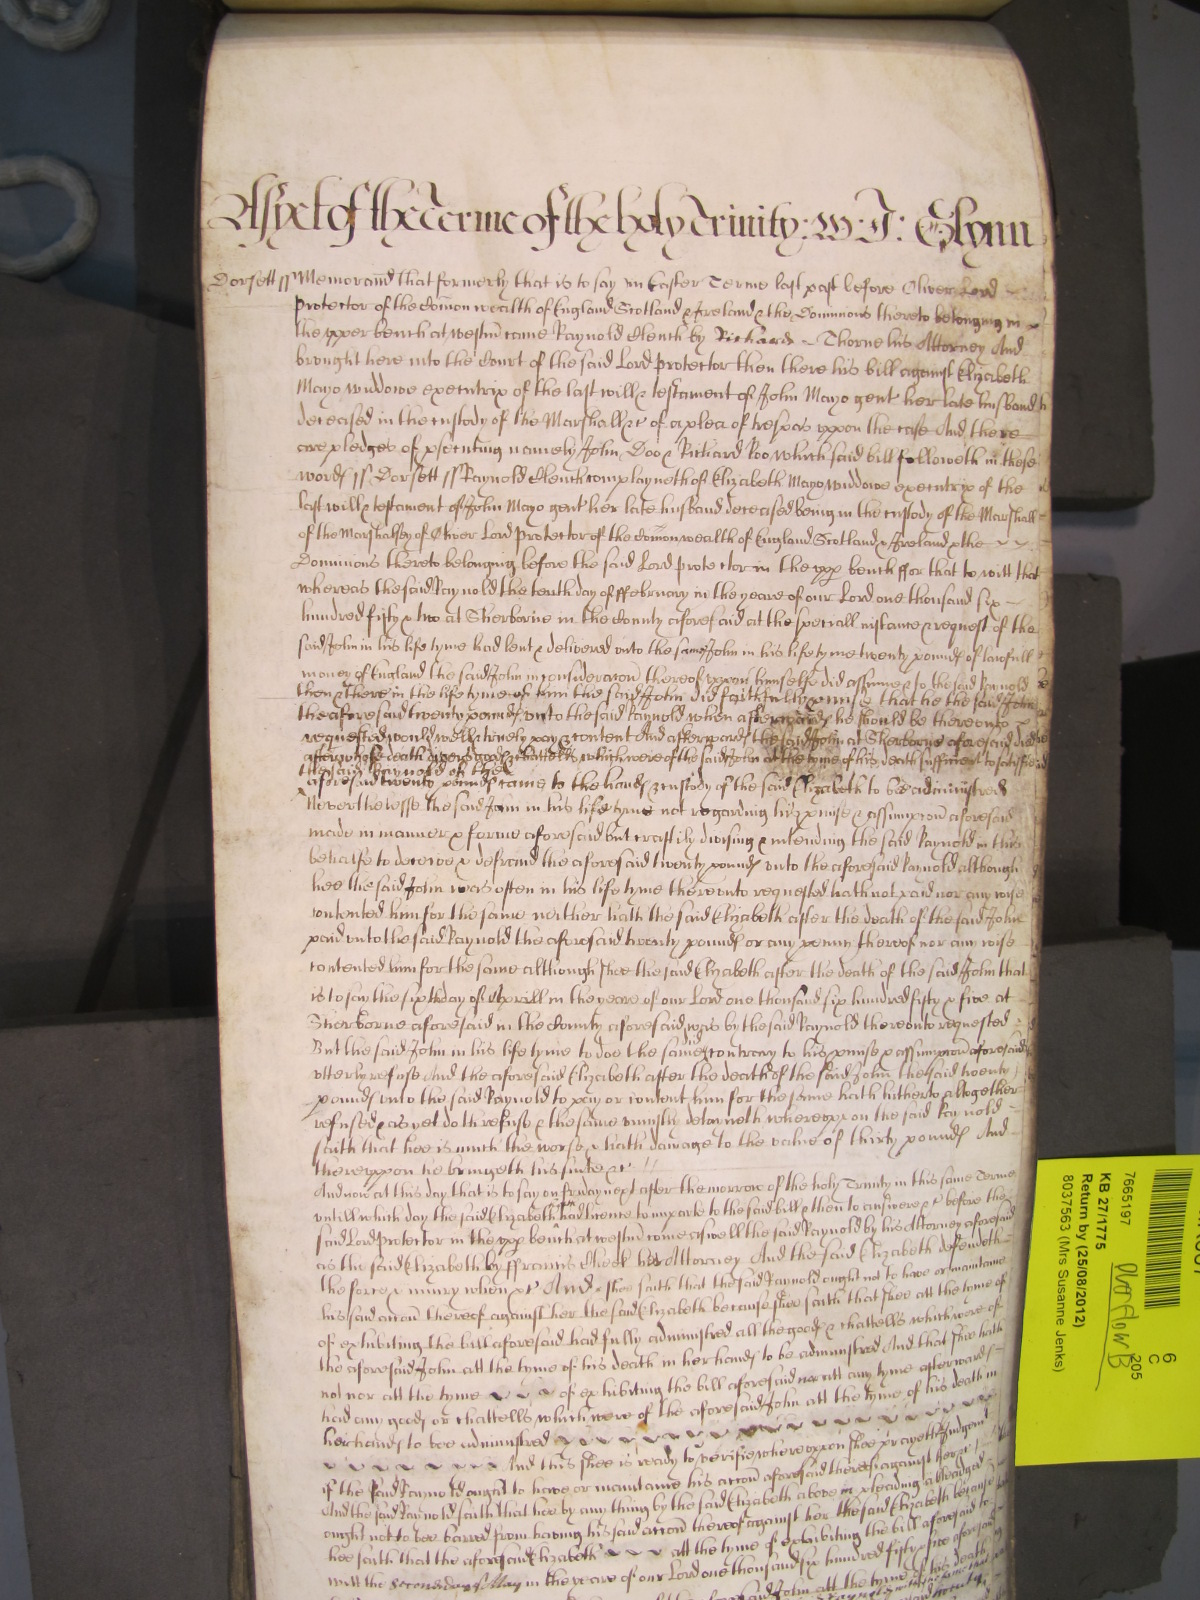 As yet of the Terme of the holy Trinity: W: J: Glynn
Dorsett ss Memorand that formerly that is to say in Easter Terme last past before Oliver Lord
Protector of the Comon wealth of England Scotland & Ireland & the Dominions thereto belonging in
the upper bench at westm came Raynold Clench by Richard Thorne his Attorney And
brought here into the Court of the said Lord Protector then there his bill against Elizabeth
Mayo widdowe executrix of the last will & testament of John Mayo gent her late husband
deceased in the custody of the Marshall &c of a plea of trespas uppon the case And there
are pledges of psecuting namely John Doo & Richard Roo which said bill followeth in these
words ss Dorsett ss Raynold Clench complayneth of Elizabeth Mayo widdowe executrix of the
last will & testament of John Mayo gent her late husband deceased being in the custody of the Marshall
of the Marshalsey of Oliver Lord Protector of the Comon wealth of England Scotland & Ireland & the
Dominions thereto belonging before the said Lord Protector in the upp bench ffor that to witt that
whereas the said Raynold the tenth day of ffebruary in the yeare of our Lord one thousand six
hundred fifty & two at Sherborne in the County aforesaid at the speciall instance & request of the
said John in his life tyme had lent & delivered unto the same John in his life tyme twenty pounds of lawfull
money of England the said John in consideracon thereof uppon himselfe did assume & to the said Raynold
then & there in the life tyme of him the said John did faithfully pmise that he the said John
the aforesaid twenty pounds unto the said Raynold when afterwards he should be thereunto
requested would well & truely pay & content And afterwards the said John at Sherborne aforesaid died
after whose death divers goods & chattells which were of the said John at the tyme of his death sufficient to satisfie
the said Raynold of the
aforesaid twenty pounds came to the hands & custody of the said Elizabeth to bee administred
Neverthelesse the said John in his life tyme not regarding his pmise & assumpcon aforesaid
made in manner & forme aforesaid but craftily divising & intending the said Raynold in this
behalfe to deceive & defraud the aforesaid twenty pounds unto the aforesaid Raynold although
hee the said John was often in his life tyme thereunto requested hath not paid nor any wise
contented him for the same neither hath the said Elizabeth after the death of the said John
paid unto the said Raynold the aforesaid twenty pounds or any penny thereof nor any wise
contented him for the same although shee the said Elizabeth after the death of the said John that
is to say the sixth day of Aprill in the yeare of our Lord one thousand six hundred fifty & five at
Sherborne aforesaid in the County aforesaid was by the said Raynold thereunto requested
But the said John in his life tyme to doe the same did contrary to his pmise & assumpcon aforesaid
utterly refuse And the aforesaid Elizabeth after the death of the said John the said twenty
pounds unto the said Raynold to pay or content him for the same hath hitherto altogether
refused & as yet doth refuse & the same uniustly deteyneth whereuppon the said Raynold
saith that hee is much the worse & hath damage to the value of thirty pounds And
thereuppon he bringeth his suite &c
And now at this day that is to say on fryday next after the morrow of the holy Trinity in this same Terme
untill which day the said Elizabeth had licence to imparle to the said bill & then to answere &c before the
said Lord Protector in the upp bench at westm come aswell the said Raynold by his Attorney aforesaid
as the said Elizabeth by ffrancis Cheek her Attorney And the said Elizabeth defendeth
the force & iniury when &c And shee saith that the said Raynold ought not to have or maintaine
his said accon thereof against her the said Elizabeth because shee saith that shee att the tyme of
of exhibiting the bill aforesaid had fully administred all the goods & chattells which were of
the aforesaid John att the tyme of his death in her hands to be administred And that shee hath
not nor att the tyme of exhibiting the bill aforesaid nor att any tyme afterwards
had any goods or chattells which were of the aforesaid John att the tyme of his death in
her hands to bee administred
And this shee is ready to verifie whereuppon shee prayeth Judgemt
if the said Raynold ought to have or maintaine his accon aforesaid thereof against her &c
And the said Raynold saith that hee by any thing by the said Elizabeth above in pleading alleadged
ought not to bee barred from having his said accon thereof against her the said Elizabeth because
hee saith that the aforesaid Elizabeth att the tyme of exhibiting the bill aforesaid to
witt the second day of May in the yeare of our Lord one thousand six hundred fifty & five aforesaid
said John att the tyme of his death
7665197
KB 27/1775
Return by (25/08/2012)
8037563 (Mrs Susanne Jenks)
6
C
205